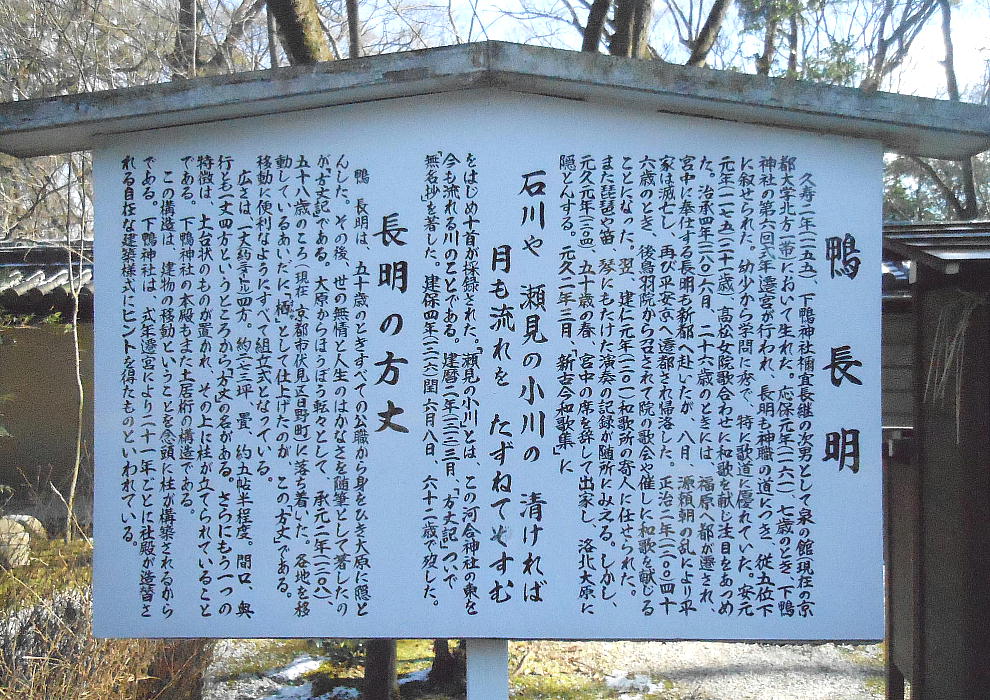 鴨 長明
久寿二年(一一五五)、下鴨神社禰宜長継の次男として泉の館現在の京
都大学北方一帯)において生れた。応保元年(一一六一)七歳のとき、下鴨
神社の第六回式年遷宮が行われ、長明も神職の道につき、従五位下
に叙せられた。幼少から学問に秀で、特に歌道に優れていた。安元
元年(一一七五)(二十一歳)、高松女院歌合わせに和歌を献じ注目をあつめ
た。治承四年(一一八〇)六月、二十六歳のときには、福原へ都が遷され、
宮中に奉仕する長明も新都へ赴いたが、八月、源頼朝の乱により平
家は滅亡し、再び平安京へ遷都され帰洛した。正治二年(一二〇〇)四十
六歳のとき、後鳥羽院から召されて院の歌会や催しに和歌を献じる
ことになった。翌、建仁元年(一二〇一)和歌所の寄人に任せられた。
また琵琶や笛、琴にもたけた演奏の記録が随所にみえる。しかし、
元久元年(一二〇四)、五十歳の春、宮中の席を辞して出家し、洛北大原に
隠とんする。元久二年三月、「新古今和歌集」に
石川や 瀬見の小川の 清ければ
月も流れを たずねてやすむ
をはじめ十首が採録された。「瀬見の小川」とは、この河合神社の東を
今も流れる川のことである。建暦二年(一二一二)三月、「方丈記」ついで
「無名抄」を著した。建保四年(一二一六)閏六月八日、六十二歳で歿した。
長明の方丈
鴨 長明は、五十歳のときすべての公職から身をひき大原に隠と
んした。その後、世の無情と人生のはかなさを随筆として著したの
が「方丈記」である。大原からほうぼう転々として、承元二年(一二〇八)、
五十八歳のころ(現在、京都市伏見区日野町)に落ち着いた。各地を移
動しているあいだに「栖」として仕上げたのが、この「方丈」である。
移動に便利なようにすべて組立式となっている。
広さは、一丈(約三㍍)四方。約二・七三坪、畳、約五帖半程度。間口、奥
行とも一丈四方というところから「方丈」の名がある。さらにもう一つの
特徴は、土台状のものが置かれ、その上に柱が立てられていること
である。下鴨神社の本殿もまた土居桁の構造である。
この構造は、建物の移動ということを念頭に柱が構築されるから
である。下鴨神社は、式年遷宮により二十一年ごとに社殿が造替さ
れる自在な建築様式にヒントを得たものといわれている。